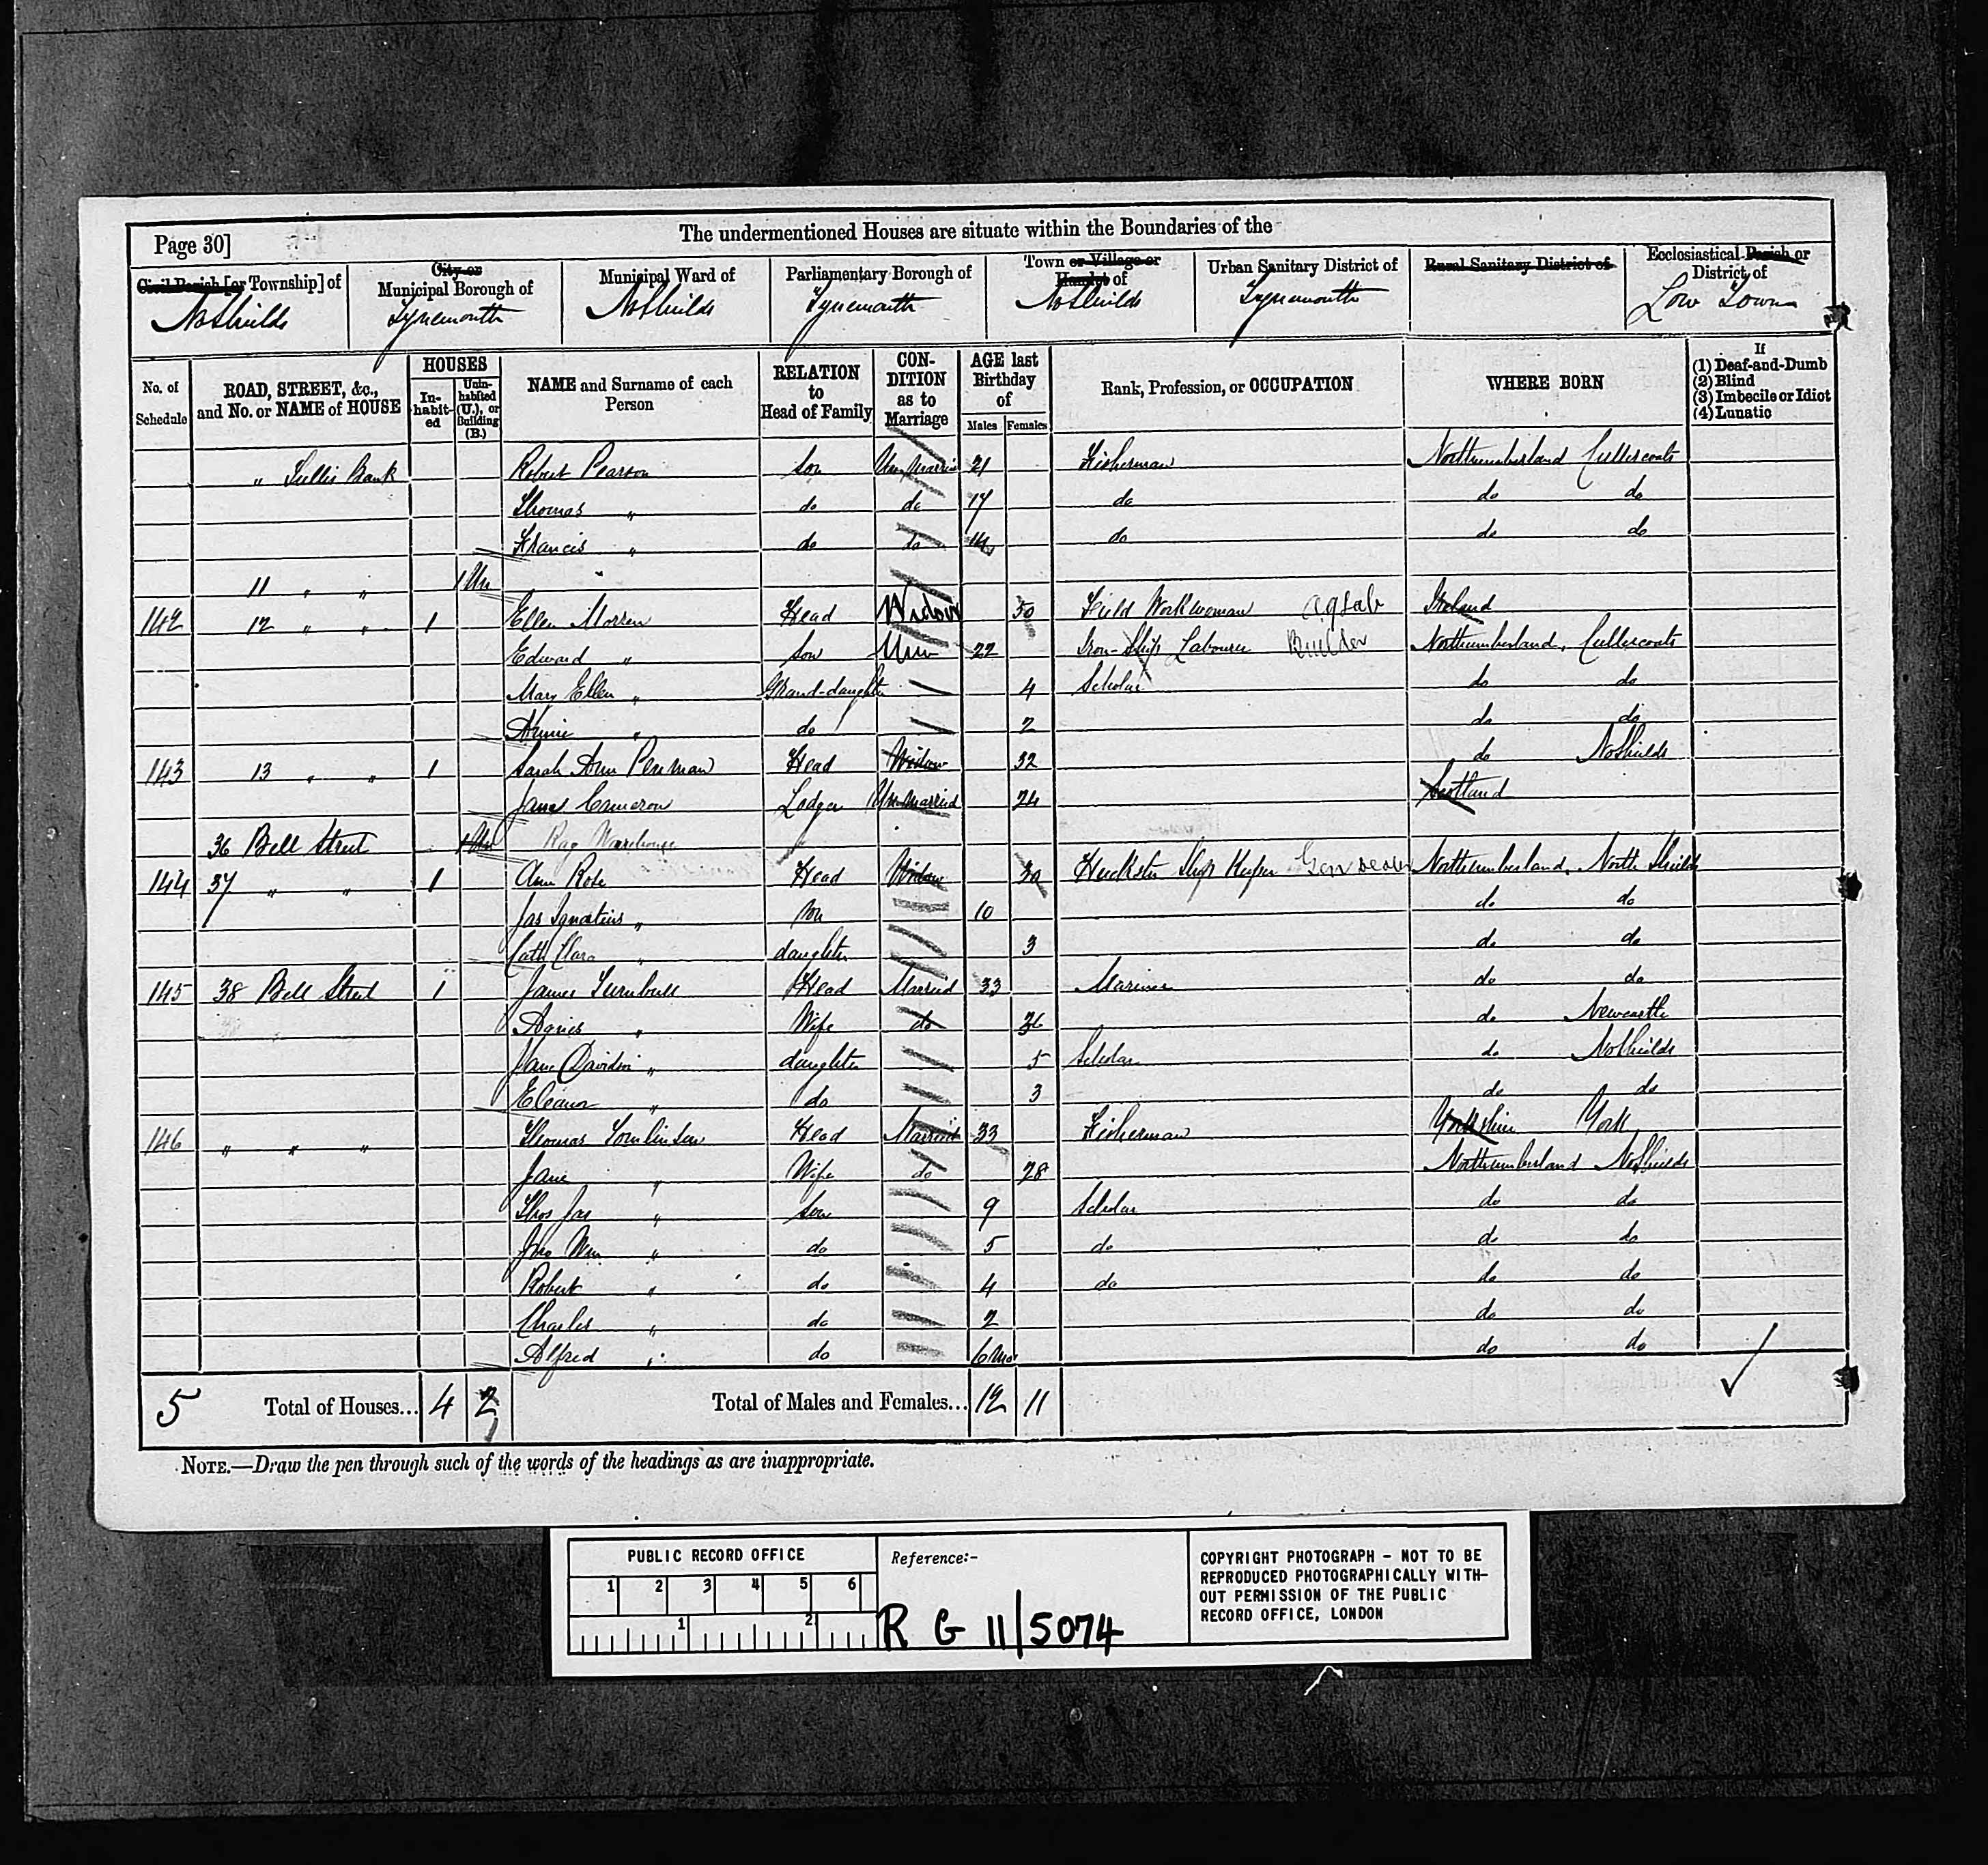 Page 30]
The undermentioned Houses are situate within the Boundaries of the
Civil Parish [or Township] of
City or Municipal Borough of
Municipal Ward of
Parliamentary Borough of
Town or Village or Hamlet of
Urban Sanitary District of
Rural Sanitary District of
Ecclesiastical Parish or District of
NoShields Tynemouth NoShields Tynemouth NoShields Tynemouth Low Town
No. of Schedule
ROAD, STREET, &c., and No. or NAME of HOUSE
HOUSES
In-habit-ed
Unin-habited (U.), or Building (B.)
NAME and Surname of each Person
RELATION to Head of Family
CON-DITION as to Marriage
AGE last Birthday of
Males Females
Rank, Profession, or OCCUPATION
WHERE BORN
If
(1) Deaf-and-Dumb
(2) Blind
(3) Imbecile or Idiot
(4) Lunatic
" Bank Robert Pearson Son UnMarried 21 Fisherman Northumberland Cullercoats
Thomas " do do 17 do do do
Francis " do do 14 do do do
11 " " 1 Un
142 12 " " 1 Ellen Morren Head Widow 50 Field Workwoman Ag Lab Ireland
Edward " Son Unm 22 Iron-Ship Labourer Builder Northumberland, Cullercoats
Mary Ellen " Grand-daughter 4 Scholar do do
Annie " do 2 do do
143 13 " " 1 Sarah Ann Penman Head Widow 32 do NoShields
James Cameron Lodger UnMarried 24 Scotland
36 Bell Street 1 Un Rag Warehouse
144 37 " " 1 Ann Head Widow 30 Huckster Shop Keeper Gen Dealer Northumberland, North Shields
Jas Ignatius " Son 10 do do
Cath Clara " daughter 3 do do
145 38 Bell Street 1 James Turnbull Head Married 33 Mariner do do
" Wife do 36 do Newcastle
Jane Davidson " daughter 5 Scholar do NoShields
Eleanor " do 3 do do
146 " " " Thomas Tomlinson Head Married 33 Fisherman Yorkshire York
Jane " Wife do 28 Northumberland NoShields
Thos Jas " Son 9 Scholar do do
Jno Wm " do 5 do do do
Robert " do 4 do do do
Charles " do 2 do do
Alfred " do 6 Mo do do
5 Total of Houses... 4 2 Total of Males and Females... 12 11
NOTE.—Draw the pen through such of the words of the headings as are inappropriate.
PUBLIC RECORD OFFICE
1 2 3 4 5 6
1 2
Reference:-
R G 11/5074
COPYRIGHT PHOTOGRAPH - NOT TO BE
REPRODUCED PHOTOGRAPHICALLY WITH-
OUT PERMISSION OF THE PUBLIC
RECORD OFFICE, LONDON